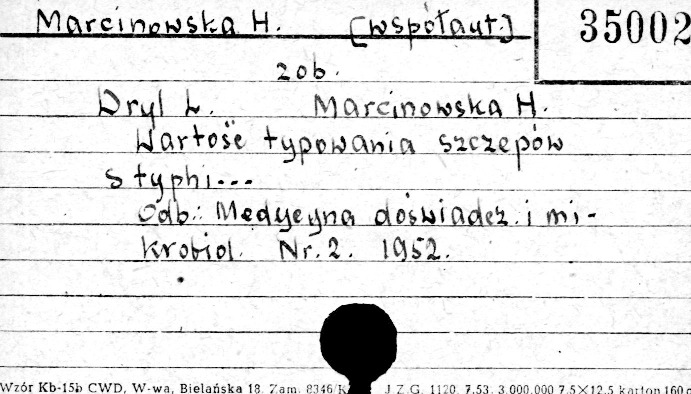 Marcinowska H. [współaut.] 35002
zob.
Dryl L. Marcinowska H.
Wartość typowania szczepów
S typhi...
Odb.: Medycyna doświadcz. i mi-
krobiol. Nr. 2. 1952.
Wzór Kb-15b CWD, W-wa, Bielańska 18. Zam. 8346/K J.Z.G. 1120. 7.53. 3.000.000 7,5×12,5 karton 160